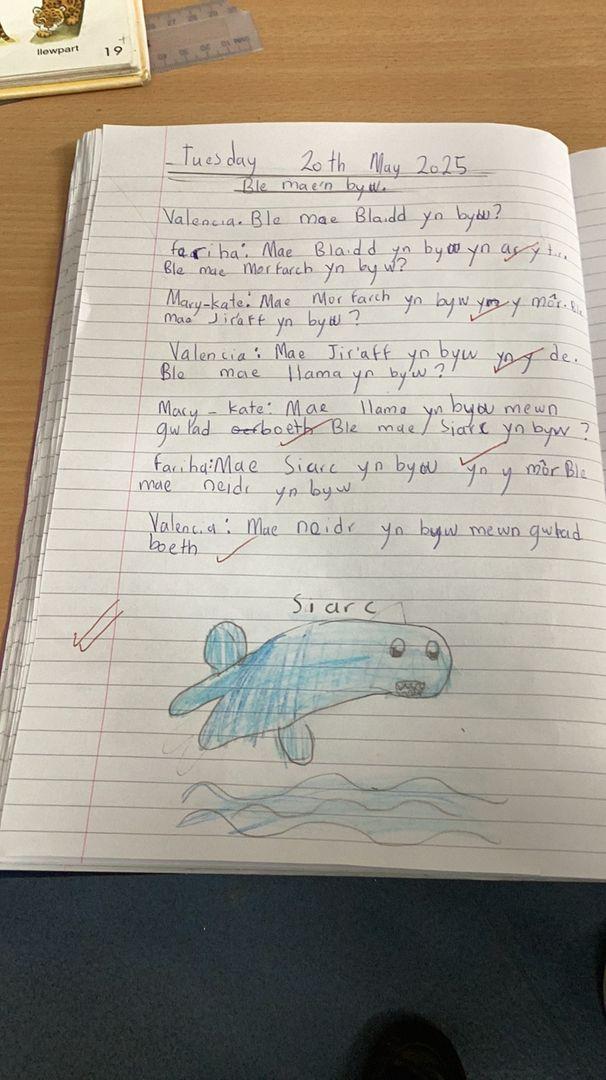 llewpart 19
Tuesday 20th May 2025
Ble mae'n byw.
Valencia. Ble mae Blaidd yn byw?
fariha: Mae Blaidd yn byw yn ar y
Ble mae Morfarch yn byw?
Mary-kate: Mae Morfarch yn byw yn y môr. Ble
mae Jiraff yn byw?
Valencia: Mae Jiraff yn byw yn y de.
Ble mae llama yn byw?
Mary-kate: Mae llama yn byw mewn
gwlad boeth Ble mae Siarc yn byw?
fariha: Mae Siarc yn byw yn y môr Ble
mae neidr yn byw
Valencia: Mae neidr yn byw mewn gwlad
boeth
Siarc